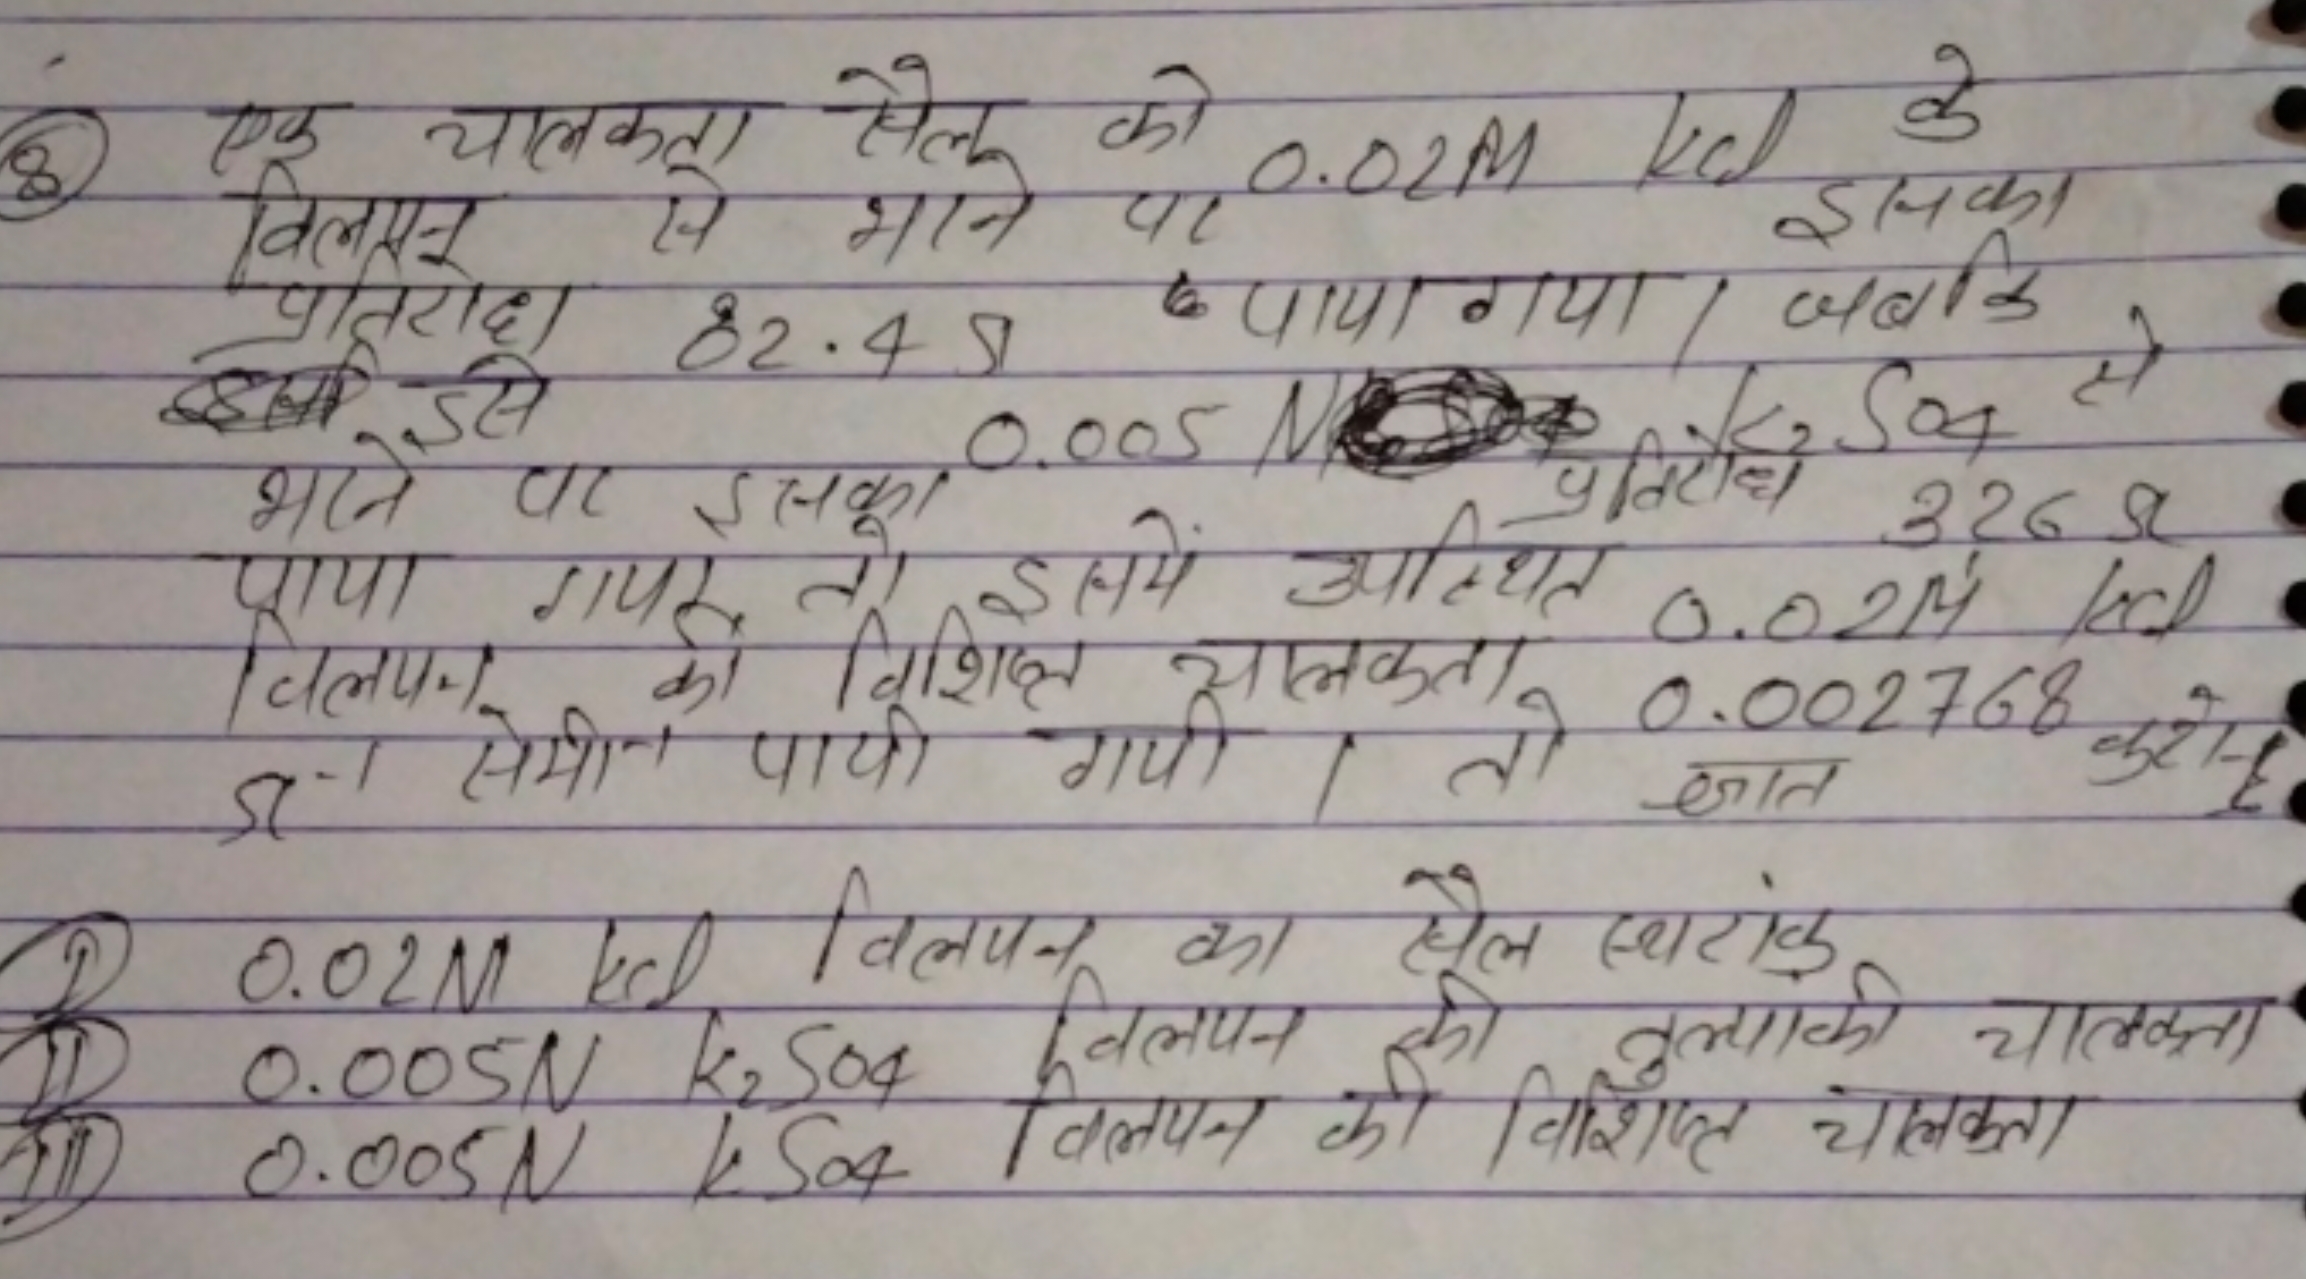 ⑧ एक चालकता सैल को 0.02M kcl के
विलयन से भरने पर इसका
प्रतिरोध 82.4 Ω पाया गया । जबकि
इसे 0.005 N K₂SO4 से
भरने पर इसका प्रतिरोध 326 Ω
पाया गया तो इसमें उपस्थित 0.02M kcl
विलयन की विशिष्ट चालकता 0.002768
Ω⁻¹ सेमी⁻¹ पायी गयी । तो ज्ञात करो
I 0.02M kcl विलयन का सैल स्थरांक
II 0.005N K₂SO4 विलयन की तुल्यांकी चालकता
III 0.005N KSO4 विलयन की विशिष्ट चालकता